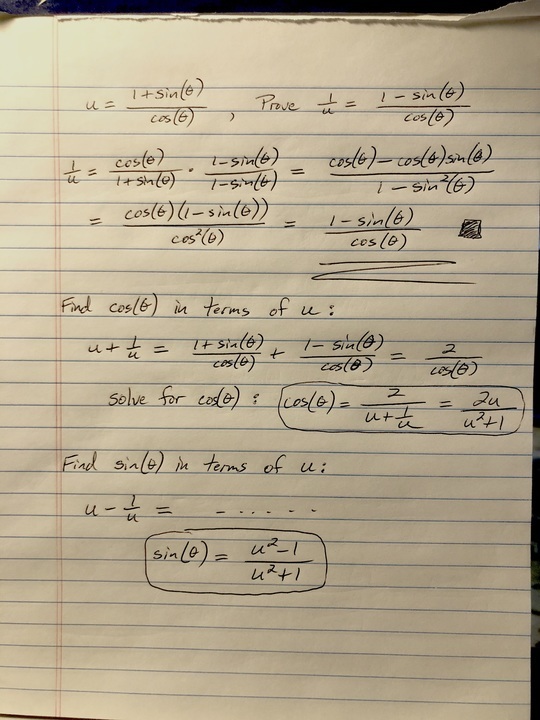 u = (1+sin(θ))/cos(θ) , Prove 1/u = (1 - sin(θ))/cos(θ)
1/u = cos(θ)/(1+sin(θ)) · (1-sin(θ))/(1-sin(θ)) = (cos(θ) - cos(θ)sin(θ))/(1 - sin²(θ))
= cos(θ)(1-sin(θ))/cos²(θ) = (1-sin(θ))/cos(θ)
Find cos(θ) in terms of u :
u + 1/u = (1+sin(θ))/cos(θ) + (1-sin(θ))/cos(θ) = 2/cos(θ)
solve for cos(θ) : cos(θ) = 2/(u+1/u) = 2u/(u²+1)
Find sin(θ) in terms of u :
u - 1/u = - . . . . . .
sin(θ) = (u²-1)/(u²+1)